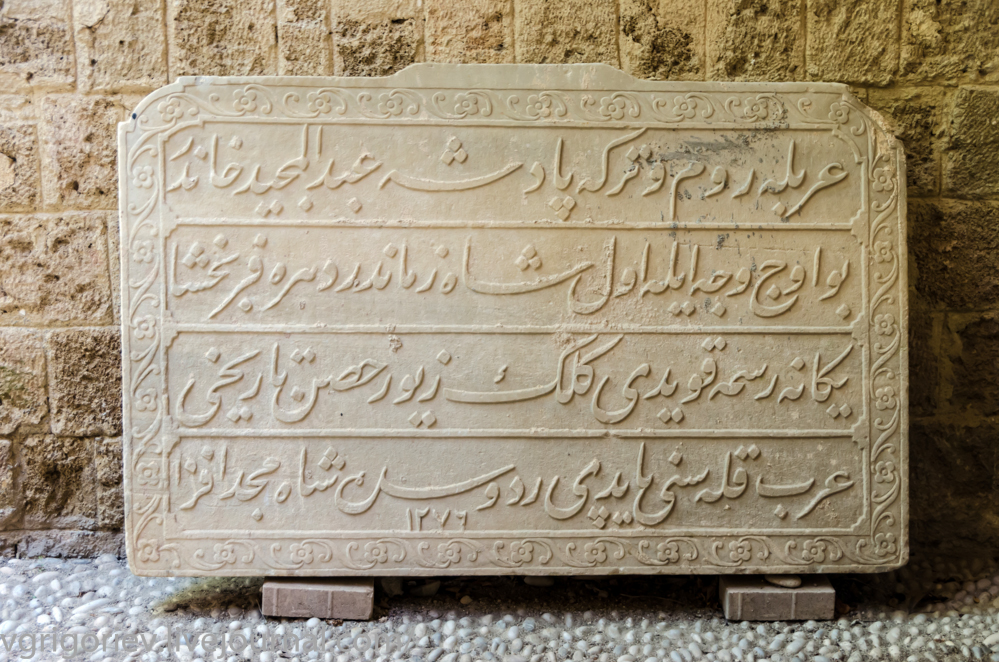 عربله روم و ترکه پادشه عبدالمجید خاندر
بو اوج وجه ایله اول شاه زماندر دهره فربخشا
یکانه رسمه قویدی کلک زیور حصن تاریخی
عرب قله سنی یاپدی ردوسك شاه مجد افزا
١٢٧٦
vgrigoryev.livejournal.com